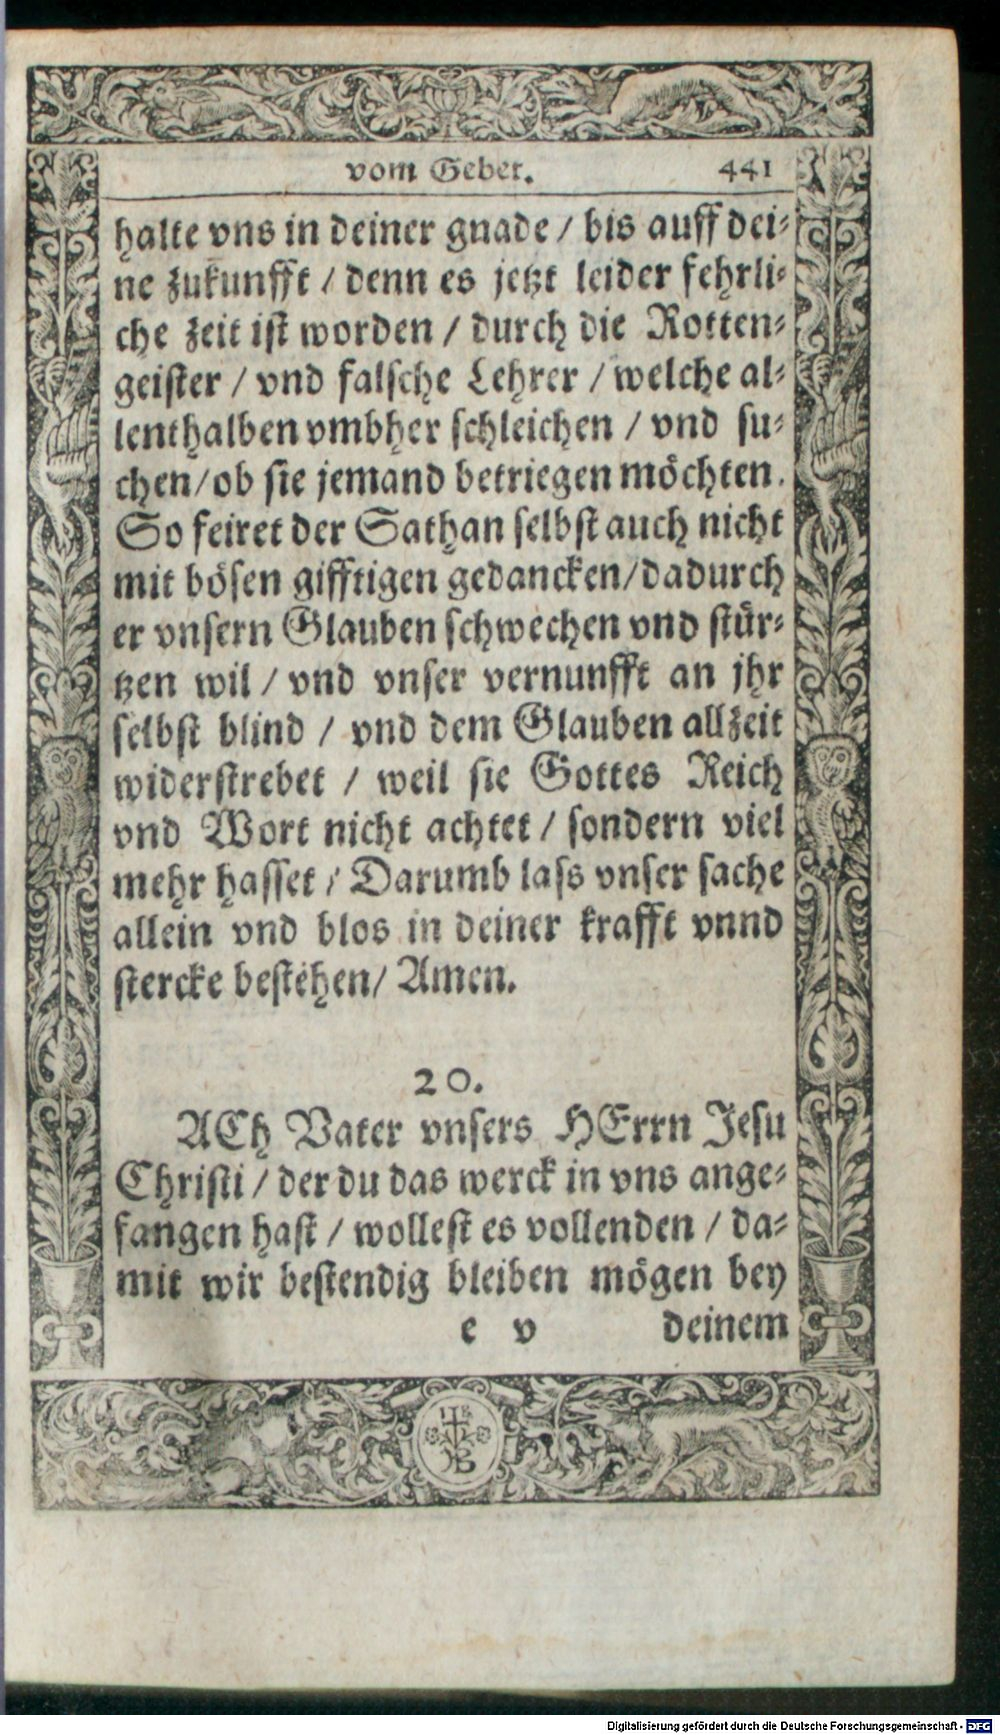 vom Gebet. 441
halte vns in deiner gnade / bis auff dei-
ne zukunfft / denn es jetzt leider fehrli-
che zeit ist worden / durch die Rotten-
geister / vnd falsche Lehrer / welche al-
lenthalben vmbher schleichen / vnd su-
chen / ob sie jemand betriegen möchten.
So feiret der Sathan selbst auch nicht
mit bösen gifftigen gedancken / dadurch
er vnsern Glauben schwechen vnd stür-
tzen wil / vnd vnser vernunfft an jhr
selbst blind / vnd dem Glauben allzeit
widerstrebet / weil sie Gottes Reich
vnd Wort nicht achtet / sondern viel
mehr hasset / Darumb lass vnser sache
allein vnd blos in deiner krafft vnnd
stercke bestehen / Amen.
20.
ACh Vater vnsers HErrn Jesu
Christi / der du das werck in vns ange-
fangen hast / wollest es vollenden / da-
mit wir bestendig bleiben mögen bey
e v deinem
Digitalisierung gefördert durch die Deutsche Forschungsgemeinschaft - DFG